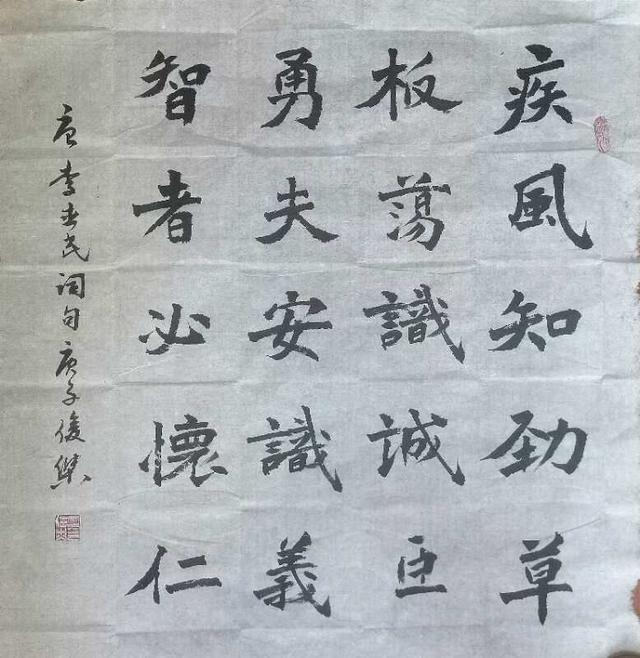 疾風知勁草
板蕩識誠臣
勇夫安識義
智者必懷仁
唐李世民詞句庚子俊傑